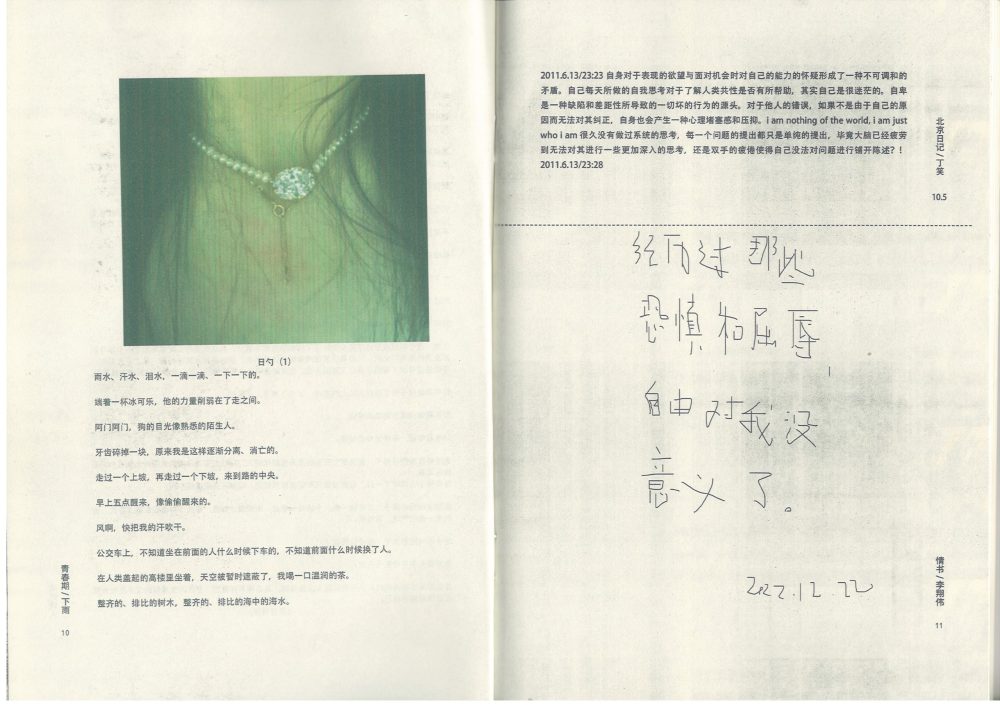 日勺（1）
雨水、汗水、泪水，一滴一滴、一下一下的。
端着一杯冰可乐，他的力量削弱在了走之间。
阿门阿门，狗的目光像熟悉的陌生人。
牙齿碎掉一块，原来我是这样逐渐分离、消亡的。
走过一个上坡，再走过一个下坡，来到路的中央。
早上五点醒来，像偷偷醒来的。
风啊，快把我的汗吹干。
公交车上，不知道坐在前面的人什么时候下车的，不知道前面什么时候换了人。
在人类盖起的高楼里坐着，天空被暂时遮蔽了，我喝一口温润的茶。
整齐的、排比的树木，整齐的、排比的海中的海水。
青春期/下雨
10
2011.6.13/23:23 自身对于表现的欲望与面对机会时对自己的能力的怀疑形成了一种不可调和的
矛盾。自己每天所做的自我思考对于了解人类共性是否有所帮助，其实自己是很迷茫的。自卑
是一种缺陷和差距性所导致的一切坏的行为的源头。对于他人的错误，如果不是由于自己的原
因而无法对其纠正，自身也会产生一种心理堵塞感和压抑。i am nothing of the world, i am just
who i am 很久没有做过系统的思考，每一个问题的提出都只是单纯的提出，毕竟大脑已经疲劳
到无法对其进行一些更加深入的思考，还是双手的疲倦使得自己没法对问题进行铺开陈述？！
2011.6.13/23:28
北京日记/丁笑
10.5
经历过那些
恐惧和屈辱
自由对我没
意义了。
2022.12.22
情书/李翔伟
11